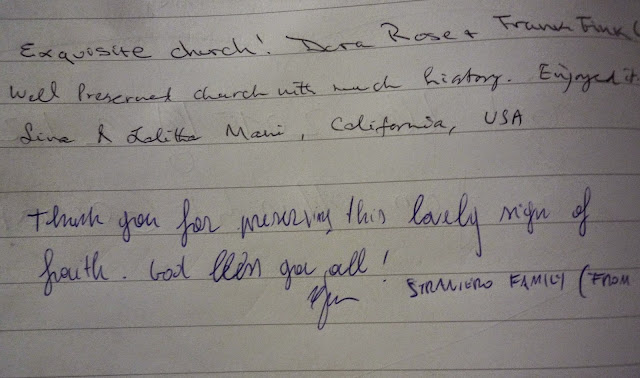 Exquisite church! Dora Rose + Frank Fink (
Well Preserved church with much history. Enjoyed it.
& Lalitha Mani, California, USA
Thank you for preserving this lovely sign of
faith. God bless you all!
STRANIERO FAMILY (FROM